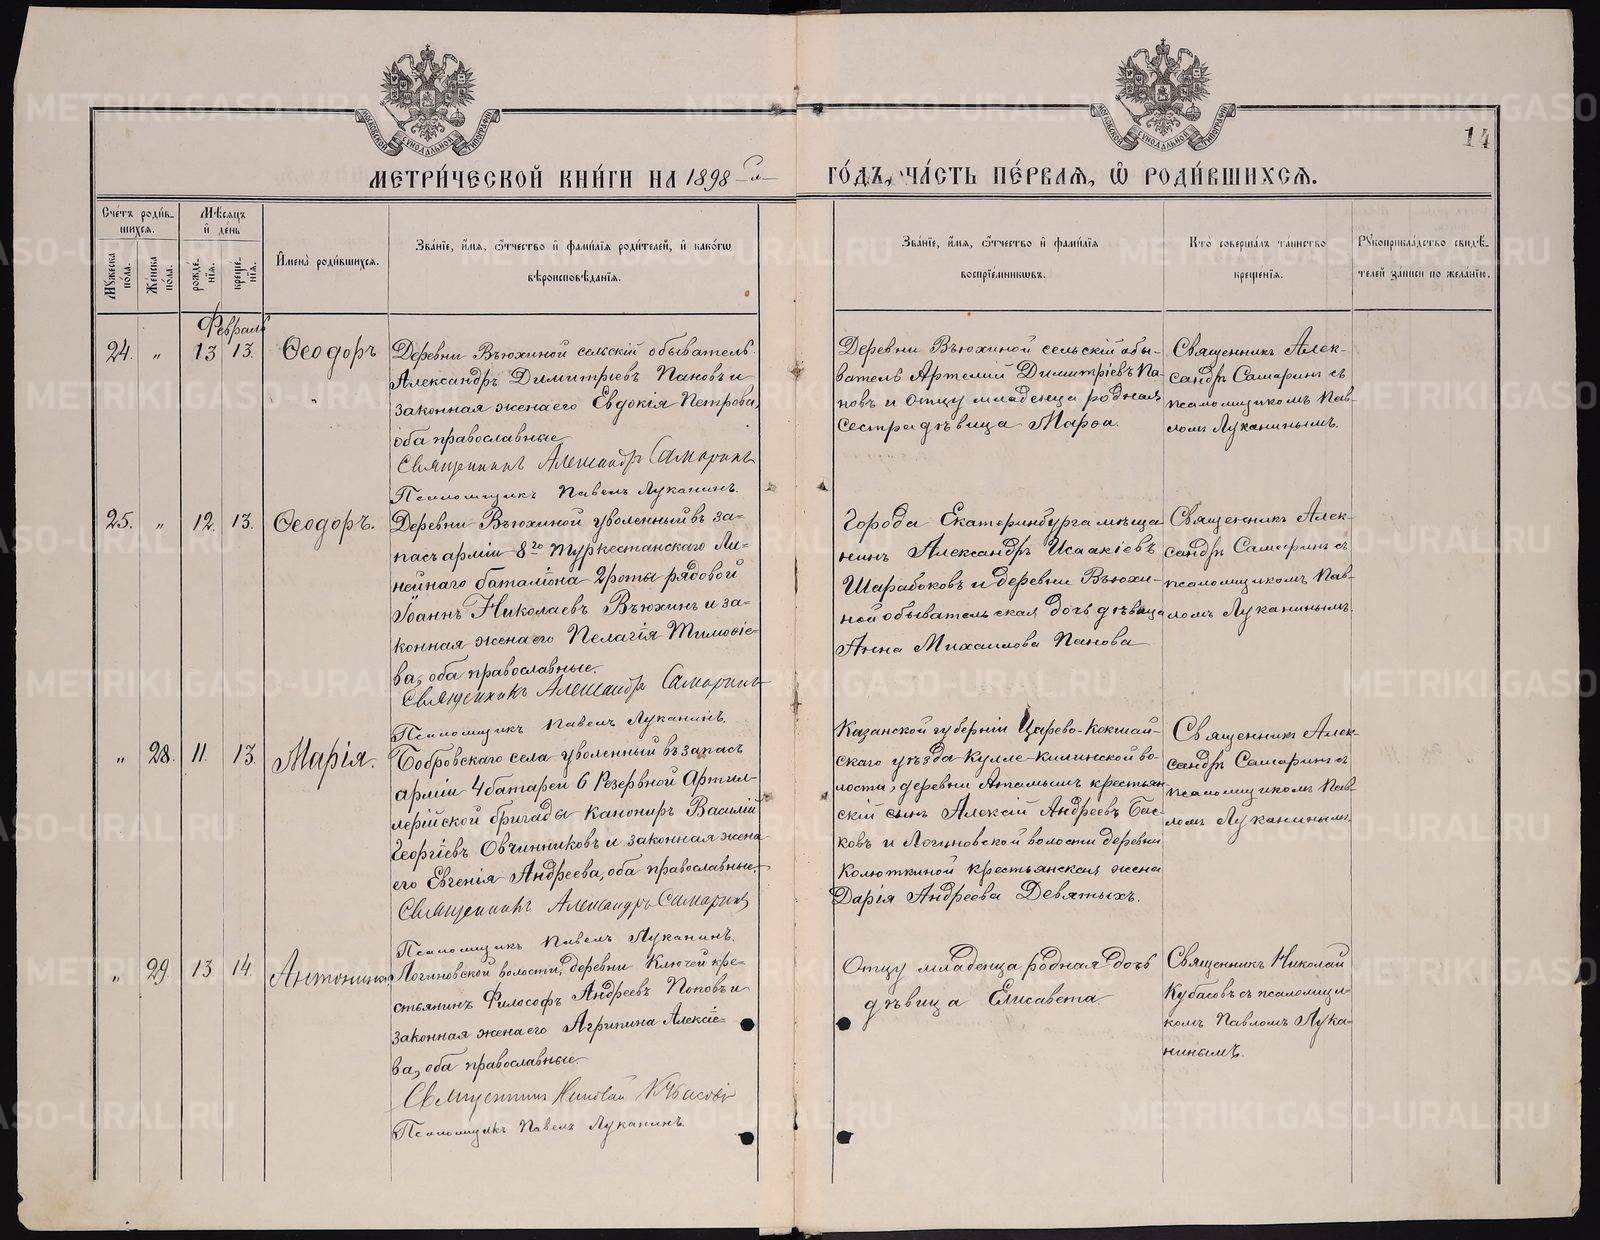 МЕТРИ́ЧЕСКОЙ КНИ́ГИ НА 1898-й ГО́ДЪ, ЧА́СТЬ ПЕ́РВАѦ, Ѿ РОДИ́ВШИХСѦ.
14
Сче́тъ роди́в-
шихся.
Мѣ́сяцъ
и де́нь
Му́жеска по́ла.
Же́нска по́ла.
рожде́нія.
креще́нія.
И҆мена̀ роди́вшихся.
Зва́ніе, и҆́мя, ѻ҆́тчество и҆ фами́лія роди́телей, и҆ како́гѡ
вѣроисповѣ́данія.
Зва́ніе, и҆́мя, ѻ҆́тчество и҆ фами́лія
воспріе́мниковъ.
Кто̀ соверша́лъ та́инство
креще́нія.
Рꙋкоприкла́дство свидѣ́-
телей за́писи по жела́нію.
Февраль
24. „ 13 13. Ѳеодоръ
Деревни Вьюхиной сельскій обыватель
Александръ Димитріевъ Пановъ и
законная жена его Евдокія Петрова,
оба православные
Священникъ Александръ Самаринъ
Псаломщикъ Павелъ Луканинъ.
Деревни Вьюхиной сельскій обы-
ватель Артемій Димитріевъ Па-
новъ и отцу младенца родная
сестра дѣвица Марѳа.
Священникъ Алек-
сандръ Самаринъ съ
псаломщикомъ Пав-
ломъ Луканинымъ.
25. „ 12. 13. Ѳеодоръ.
Деревни Вьюхиной уволенный въ за-
пасъ арміи 8го Туркестанскаго Ли-
нейнаго баталіона 2 роты рядовой
Іоаннъ Николаевъ Вьюхинъ и за-
конная жена его Пелагія Тимоѳіе-
ва, оба православные.
Священникъ Александръ Самаринъ
Псаломщикъ Павелъ Луканинъ.
Города Екатеринбурга мѣща
нинъ Александръ Исаакіевъ
Шарабоковъ и деревни Вьюхи-
ной обывательская дочь дѣвица
Анна Михаилова Панова
Священникъ Алек-
сандръ Самаринъ съ
псаломщикомъ Пав-
ломъ Луканинымъ.
„ 28. 11. 13. Марія.
Бобровскаго села уволенный въ запасъ
арміи 4 батареи 6 Резервной Артил-
лерійской бригады канониръ Василій
Георгіевъ Овчинниковъ и законная жена
его Евгенія Андреева, оба православные.
Священникъ Александръ Самаринъ
Псаломщикъ Павелъ Луканинъ.
Казанской губерніи Царево-Кокшай-
скаго уѣзда Кулле-Киминской во-
лости, деревни крестьян
скій сынъ Алексій Андреевъ Бас-
ковъ и Логиновской волости деревни
Колюткиной крестьянская жена
Дарія Андреева Девятыхъ.
Священникъ Алек-
сандръ Самаринъ съ
псаломщикомъ Пав-
ломъ Луканинымъ.
„ 29. 13 14. Антонина
Логиновской волости, деревни Ключей кре-
стьянинъ Философъ Андреевъ Поповъ и
законная жена его Агрипина Алексіе-
ва, оба православные.
Священникъ Николай Кубасовъ
Псаломщикъ Павелъ Луканинъ.
Отцу младенца родная дочь
дѣвица Елисавета
Священникъ Николай
Кубасовъ съ псаломщи-
комъ Павломъ Лука-
нинымъ.
METRIKI.GASO-URAL.RU